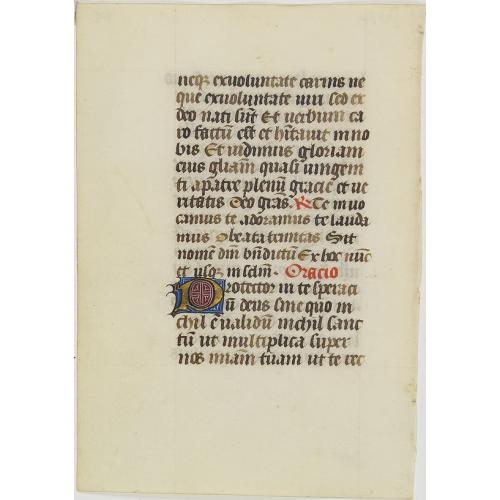 neq; exvoluntate carnis ne
que exvoluntate viri sed ex
deo nati sūt Et verbum ca
ro factū est et hītavit in no
bis Et vidimus gloriam
eius gliam̄ quasi vnigem
ti apatre plenū gracie et ve
ritatis Deo grās. R Te invo
camus te adoramus te lauda
mus O beata trinitas Sit
nomē dnī bn̄dictū Ex hoc nūc
et vsq; in sclm̄. Oracio
Protector in te speraci
ū deus sine quo in
chil ē validū nichil sanc
tū ut multiplica super
nos miam̄ tuam ut te rec